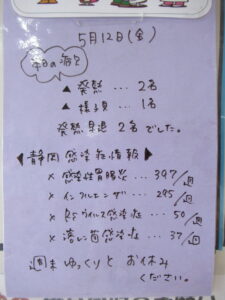 5月12日(金)
本日の病欠
▲ 発熱 … 2名
▲ 様子見 … 1名
発熱早退 2名でした。
◀静岡 感染症情報▶
× 感染性胃腸炎 … 397/週
× インフルエンザ … 295/週
× RSウイルス感染症 … 50/週
× 溶レン菌感染症 … 37/週
週末ゆっくりと お休み
ください。